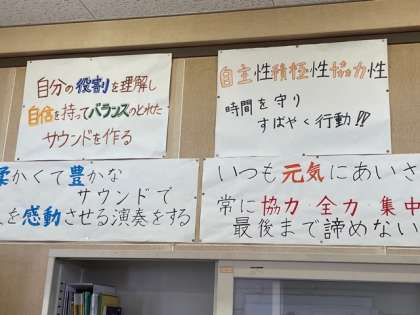 自分の役割を理解し
自信を持ってバランスのとれた
サウンドを作る
自主性積極性協力性
時間を守り
すばやく行動!!
柔かくて豊かな
サウンドで
を感動させる演奏をする
いつも元気にあいさ
常に協力 全力 集中
最後まで諦めない